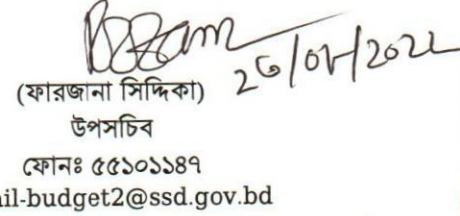 (ফারজানা সিদ্দিকা)
উপসচিব
ফোনঃ ৫৫১০১১৪৭
il-budget2@ssd.gov.bd